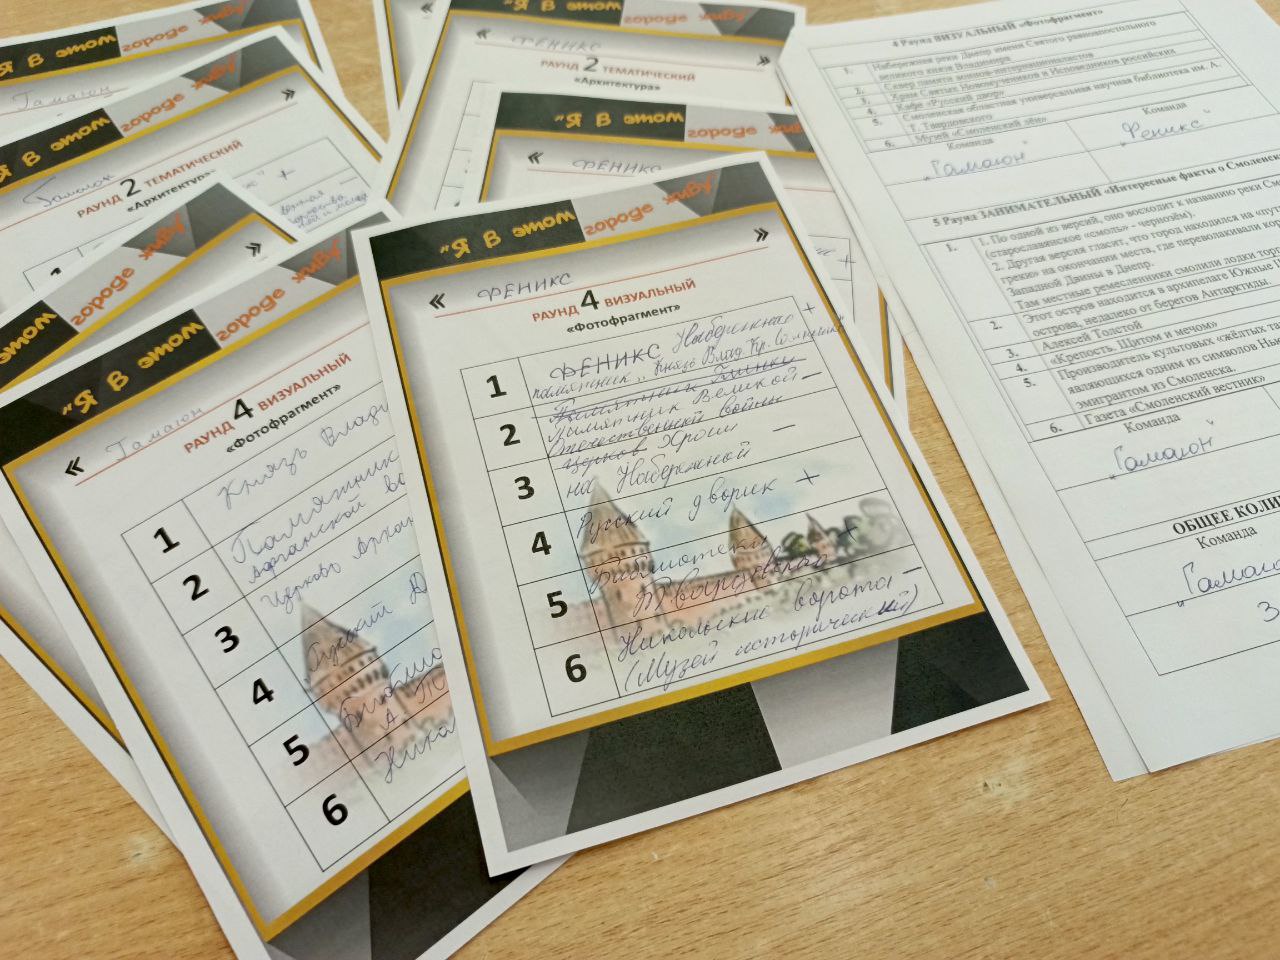 "Я В этом
городе живу
Гамаюн
»
"Я В этом
городе живу"
Гамаюн
»
РАУНД 2 ТЕМАТИЧЕСКИЙ
«Архитектура»
+
"Я В этом
городе живу
« ФЕНИКС »
РАУНД 2 ТЕМАТИЧЕСКИЙ
«Архитектура»
"Я В этом
городе живу"
« ФЕНИКС
этом
городе живу"
»
"Я В этом
городе живу
« Гамаюн
РАУНД 4 ВИЗУАЛЬНЫЙ
«Фотофрагмент»
1 Князь Влади
2 Памятник
Афганской во
3 Церковь Архан
4 Русский Д
5 Библио
А. Тв
6 Нико
"Я В этом
городе живу"
« ФЕНИКС »
РАУНД 4 ВИЗУАЛЬНЫЙ
«Фотофрагмент»
1 ФЕНИКС Набережная +
памятник „ Князь Влад. Кр. Солнышко"
2 Памятник Глинки
Памятник Великой –
Отечественной войны
3 Церковь Храм –
на Набережной
4 Русский дворик +
5 Библиотека +
Твардовского
6 Никольские ворота –
(Музей исторический)
4 Раунд ВИЗУАЛЬНЫЙ «Фотофрагмент»
1. Набережная реки Днепр имени Святого равноапостольного
великого князя Владимира
2. Сквер памяти воинов-интернационалистов
3. Храм Святых Новомучеников и Исповедников российских
4. Кафе «Русский двор»
5. Смоленская областная универсальная научная библиотека им. А.
Т. Твардовского
6. Музей «Смоленский лён»
Команда Команда
„Гамаюн" „Феникс"
5 Раунд ЗАНИМАТЕЛЬНЫЙ «Интересные факты о Смоленс
1. 1. По одной из версий, оно восходит к названию реки См
(старославянское «смоль» - чернозём).
2. Другая версия гласит, что город находился на «пут
греки» на окончании места, где переволакивали кор
Западной Двины в Днепр.
Там местные ремесленники смолили лодки торг
2. Этот остров находится в архипелаге Южные Ш
острова, недалеко от берегов Антарктиды.
3. Алексей Толстой
4. «Крепость. Щитом и мечом»
5. Производитель культовых «жёлтых та
являющихся одним из символов Нью
эмигрантом из Смоленска.
6. Газета «Смоленский вестник»
Команда
„Гамаюн"
ОБЩЕЕ КОЛИ
Команда
„Гамаю
3